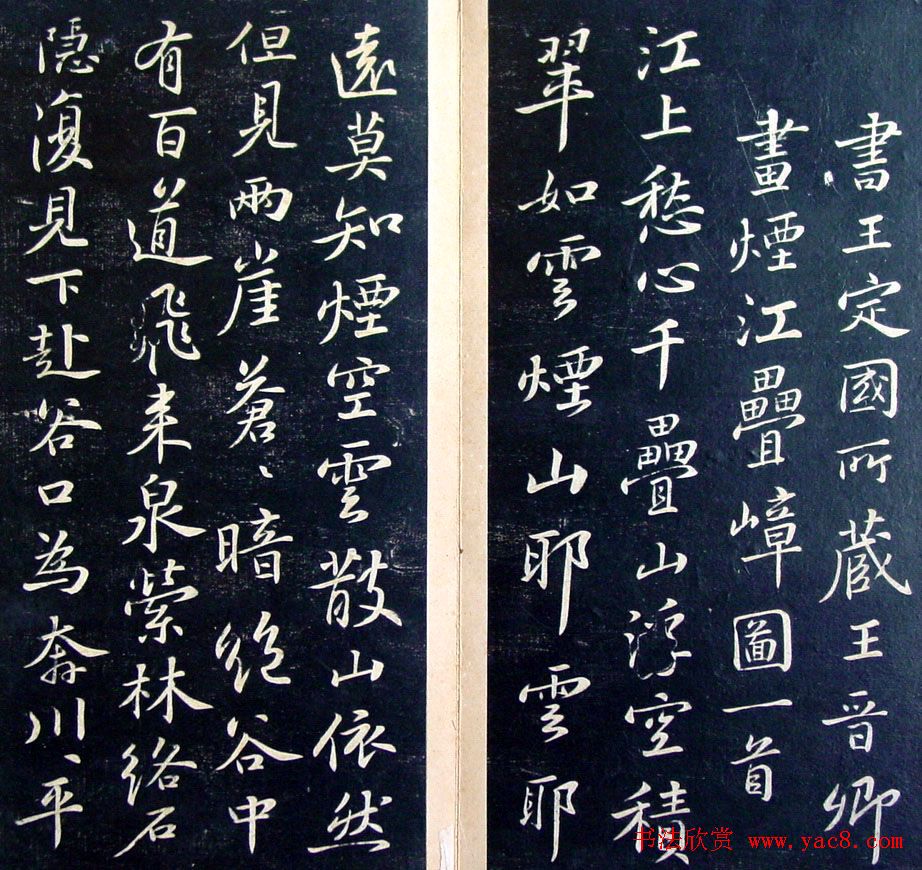 書王定國所蔵王晉卿
畫煙江疊嶂圖一首
江上愁心千疊山浮空積
翠如雲煙山耶雲耶
遠莫知煙空雲散山依然
但見兩崖蒼〻暗絕谷中
有百道飛来泉縈林絡石
隠復見下赴谷口為奔川〻平
书法欣赏 www.yac8.com